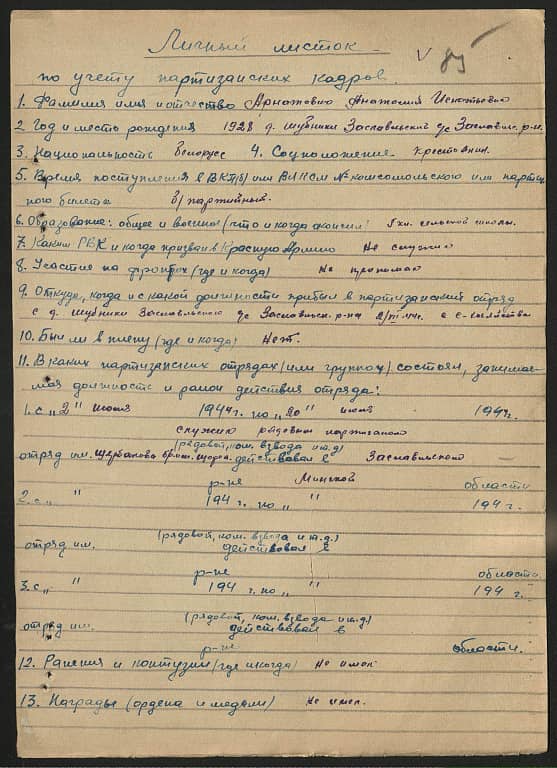 Личный листок
V 85
по учету партизанских кадров.
1. Фамилия имя и отчество Арнатович Анатолия Игнатьевич
2. Год и место рождения 1928 д. Шубники Заславльский с/с Заславльс. р-на.
3. Национальность белорус 4. Соцположение крестьянин.
5. Время поступления в ВКП(б) или ВЛКСМ № комсомольского или партий
ного билета б/партийный.
6. Образование: общее и военное (что и когда окончил) сельской школы.
7. Каким РВК и когда призван в Красную Армию Не служил
8. Участие на фронтах (где и когда) Не принимал
9. Откуда, когда и с какой должности прибыл в партизанский отряд
с д. Шубники Заславльского с/с Заславльск. р-на 44г. с с-хозяйства
10. Был ли в плену (где и когда) Нет.
11. В каких партизанских отрядах (или группах) состоял, занимае-
мая должность и район действия отряда:
1. с "2" июня 1944г. по "20" июля 1944г.
служил рядовым партизаном
(рядовой, ком. взвода и т.д)
отряд им. Щербакова бриг. Щорса действовал в Заславльского
р-не Минской области
2. с „ " 194 г. по „ " 194 г.
(рядовой, ком. взвода и т.д.)
отряд им. действовал в
р-не области
3. с „ " 194 г. по „ " 194 г.
(рядовой, ком. взвода и т.д)
отряд им. действовал в
р-не области.
12. Ранения и контузии (где и когда) Не имел
13. Награды (ордена и медали) Не имел.